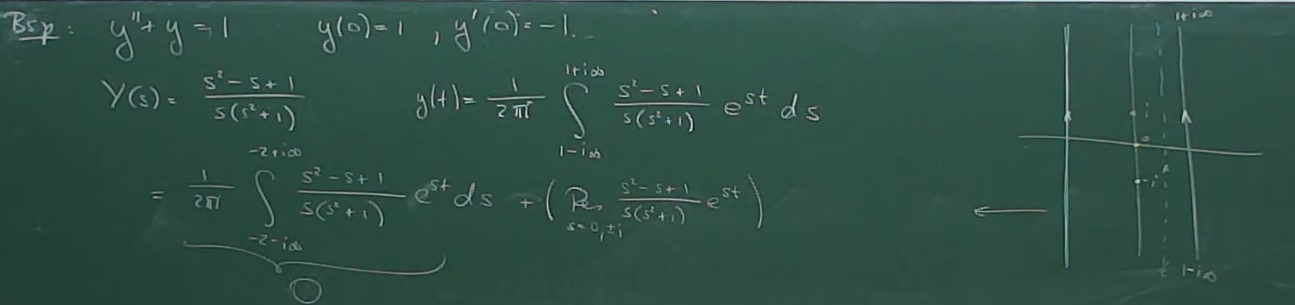 Bsp: y'' + y = 1   y(0) = 1 , y'(0) = -1.
Y(s) = \frac{s^2 - s + 1}{s(s^2 + 1)}   y(t) = \frac{1}{2\pi i} \int_{1-i\infty}^{1+i\infty} \frac{s^2 - s + 1}{s(s^2 + 1)} e^{st} ds
= \frac{1}{2\pi i} \int_{-2-i\infty}^{-2+i\infty} \frac{s^2 - s + 1}{s(s^2 + 1)} e^{st} ds + ( Res_{s=0, ±i} \frac{s^2 - s + 1}{s(s^2 + 1)} e^{st} )
0
1+i∞
i
0
-i
1-i∞